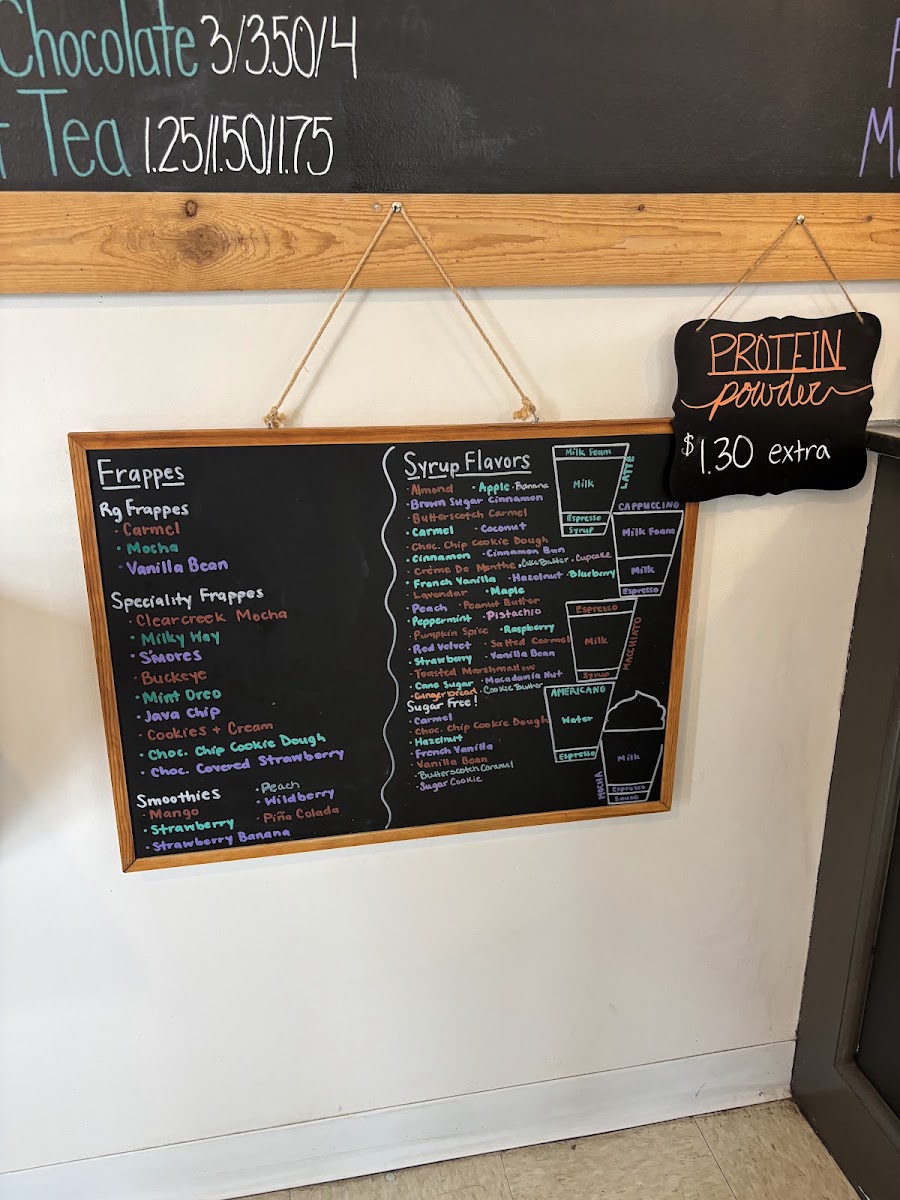 Chocolate 3/3.50/4
Tea 1.25/1.50/1.75
PROTEIN
powder
$1.30 extra
Frappes
Rg Frappes
· Carmel
· Mocha
· Vanilla Bean
Speciality Frappes
· Clearcreek Mocha
· Milky Way
· S'mores
· Buckeye
· Mint Oreo
· Java Chip
· Cookies + Cream
· Choc. Chip Cookie Dough
· Choc. Covered Strawberry
Smoothies · Peach
· Mango · Wildberry
· Strawberry · Piña Colada
· Strawberry Banana
Syrup Flavors
· Almond · Apple · Banana
· Brown Sugar Cinnamon
· Butterscotch Carmel
· Carmel · Coconut
· Choc. Chip Cookie Dough
· Cinnamon · Cinnamon Bun
· Créme De Menthe · Cake Batter · Cupcake
· French Vanilla · Hazelnut · Blueberry
· Lavendar · Maple
· Peach · Peanut Butter
· Peppermint · Pistachio
· Pumpkin Spice · Raspberry
· Red Velvet · Salted Carmel
· Strawberry · Vanilla Bean
· Toasted Marshmallow
· Cane Sugar · Macadamia Nut
· Gingerbread · Cookie Butter
Sugar Free!
· Carmel
· Choc. Chip Cookie Dough
· Hazelnut
· French Vanilla
· Vanilla Bean
· Butterscotch Caramel
· Sugar Cookie
Milk Foam
Milk
Espresso
Syrup
LATTE
CAPPUCCINO
Milk Foam
Milk
Espresso
Espresso
Milk
Syrup
MACCHIATO
AMERICANO
Water
Espresso
Milk
Espresso
Sauce
MOCHA